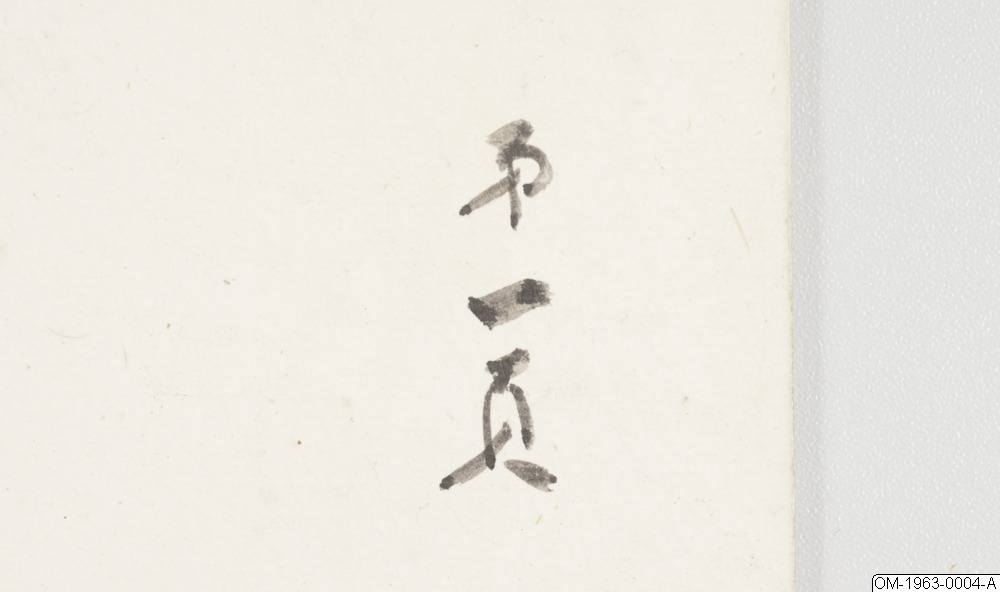 第一頁
OM-1963-0004-A